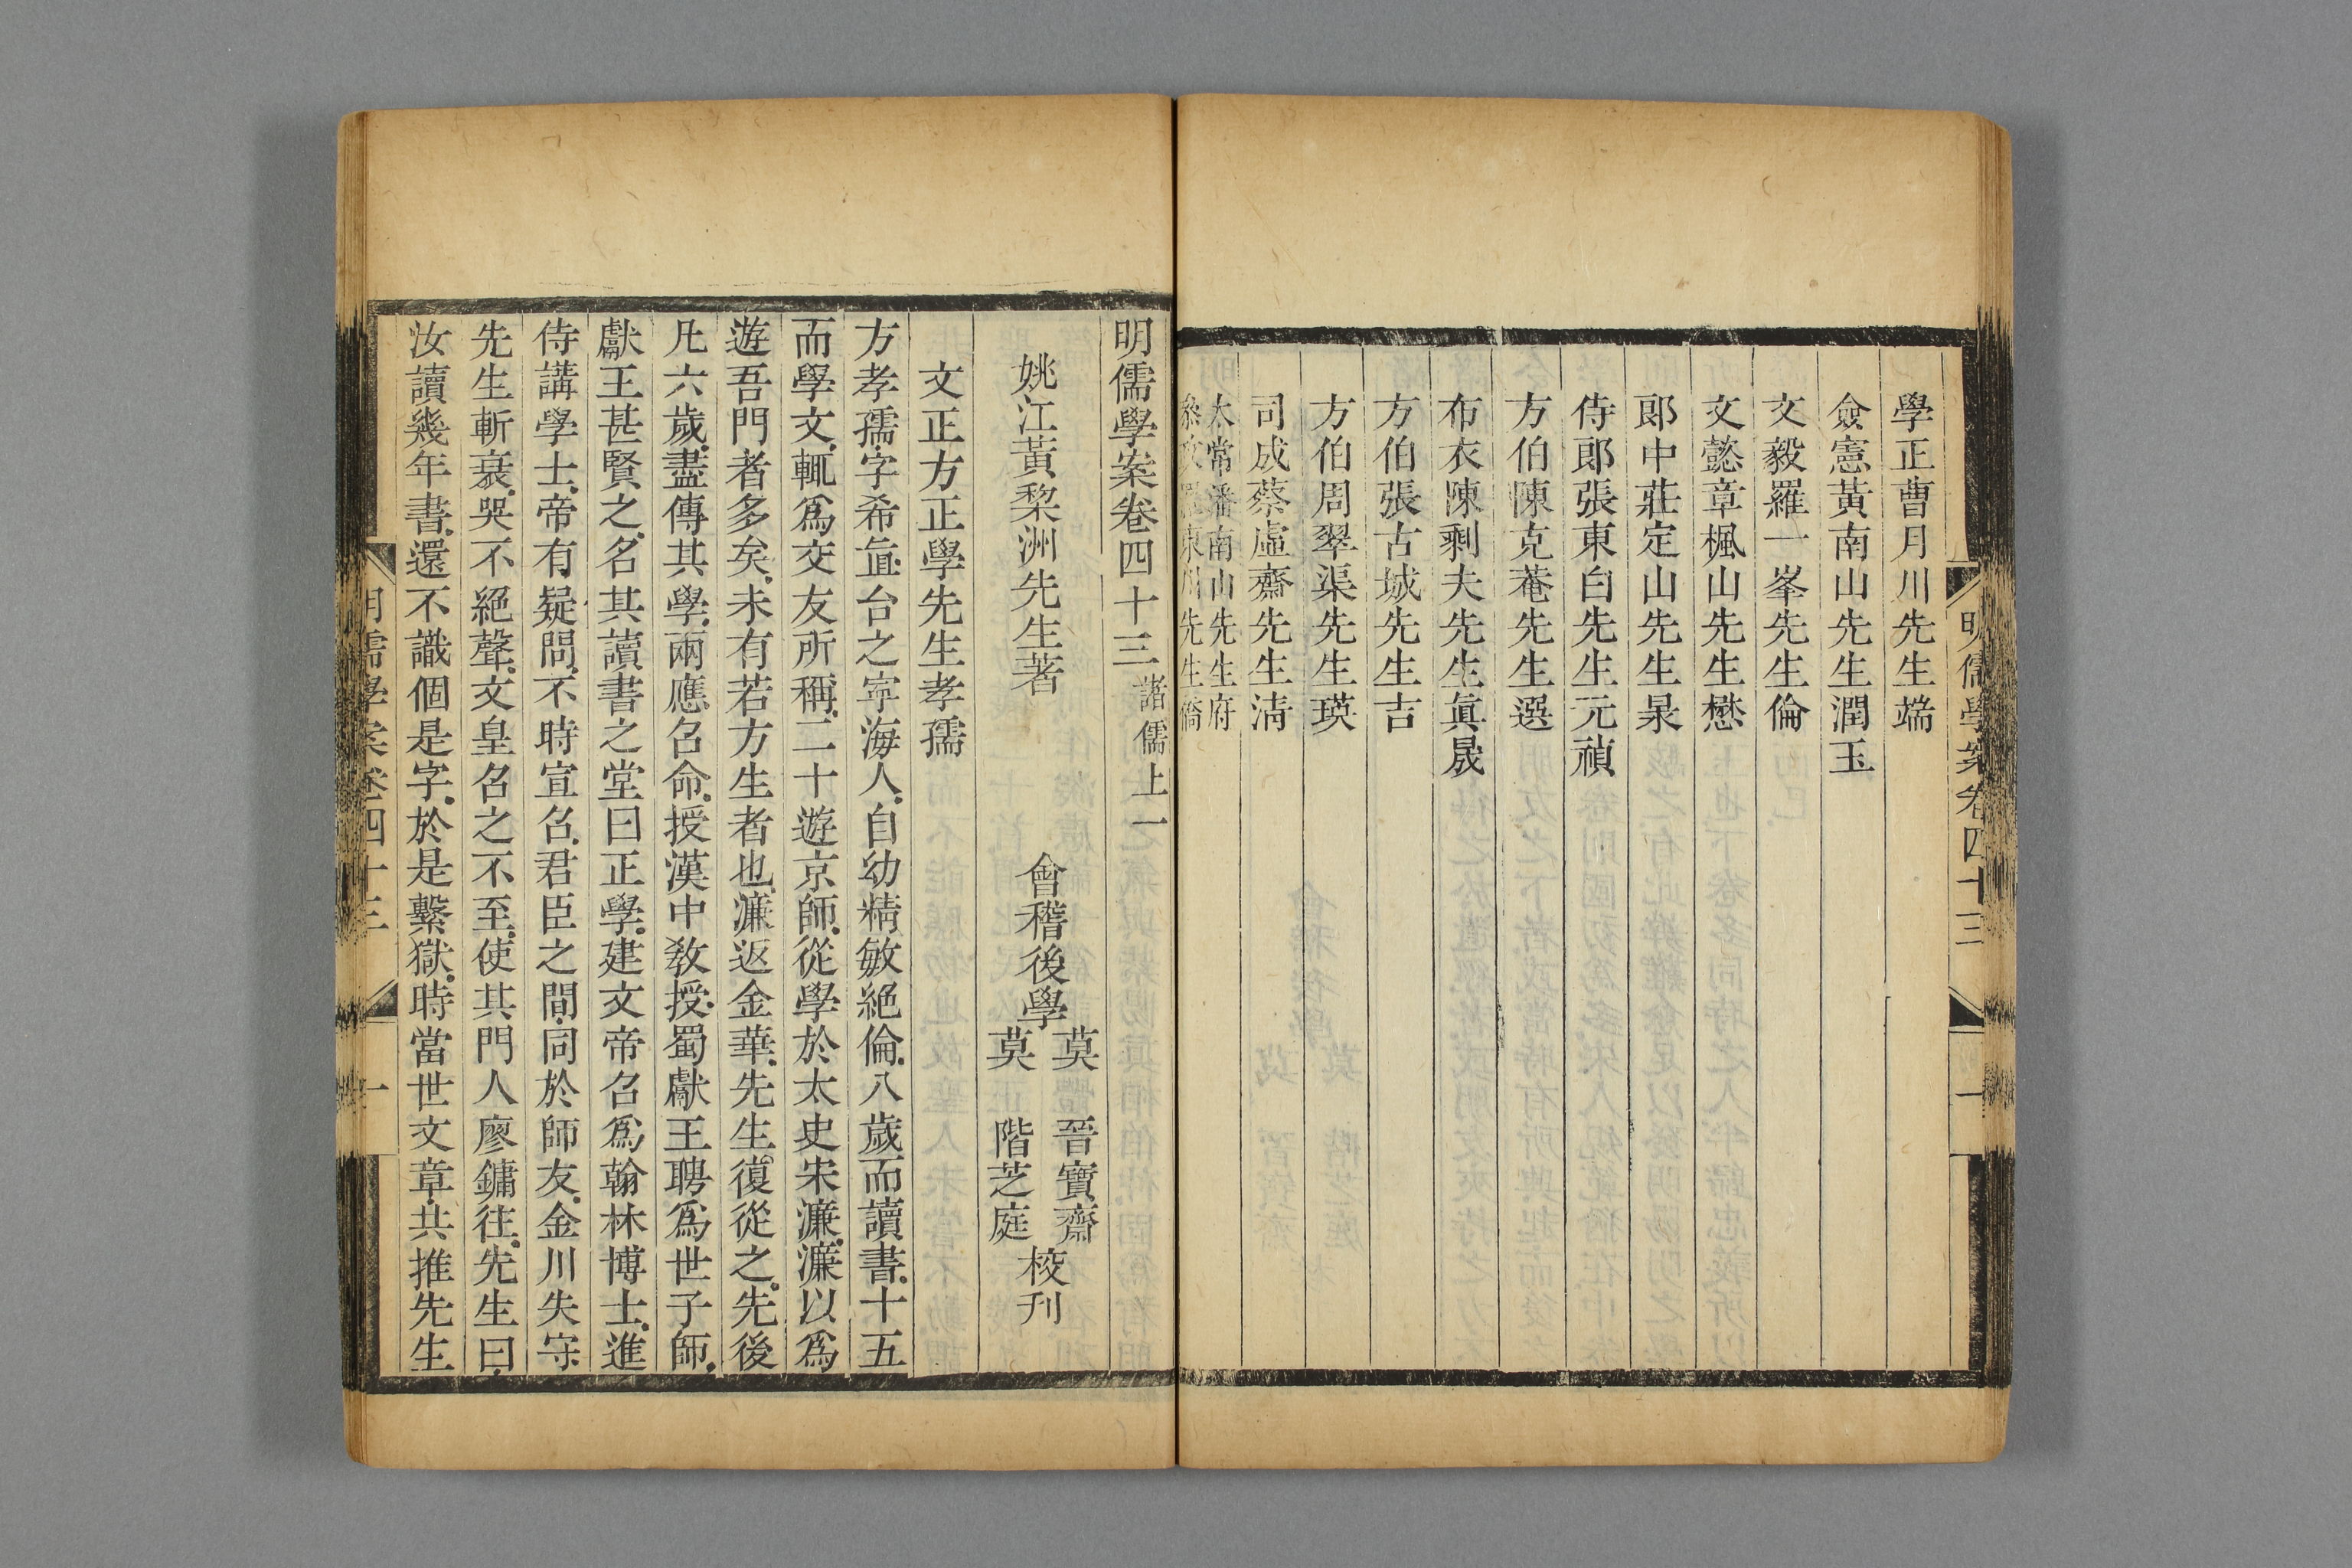 明儒學案卷四十三
一
學正曹月川先生端
僉憲黃南山先生潤玉
文毅羅一峯先生倫
文懿章楓山先生懋
郎中莊定山先生㫤
侍郎張東白先生元禎
方伯陳克菴先生選
布衣陳剩夫先生眞晟
方伯張古城先生吉
方伯周翠渠先生瑛
司成蔡虛齋先生清
太常潘南山先生府
叅政羅東川先生僑
明儒學案卷四十三 諸儒上一
姚江黃黎洲先生著
會稽後學
莫 晉寶齋
莫 階芝庭
校刊
文正方正學先生孝孺
方孝孺字希直台之寧海人自幼精敏絕倫八歲而讀書十五
而學文輒爲交友所稱二十遊京師從學於太史宋濂濂以爲
遊吾門者多矣未有若方生者也濂返金華先生復從之先後
凡六歲盡傳其學兩應召命授漢中教授蜀獻王聘爲世子師
獻王甚賢之名其讀書之堂曰正學建文帝召爲翰林博士進
侍講學士帝有疑問不時宣召君臣之間同於師友金川失守
先生斬衰哭不絕聲文皇召之不至使其門人廖鏞往先生曰
汝讀幾年書還不識個是字於是繫獄時當世文章共推先生
明儒學案卷四十三
一